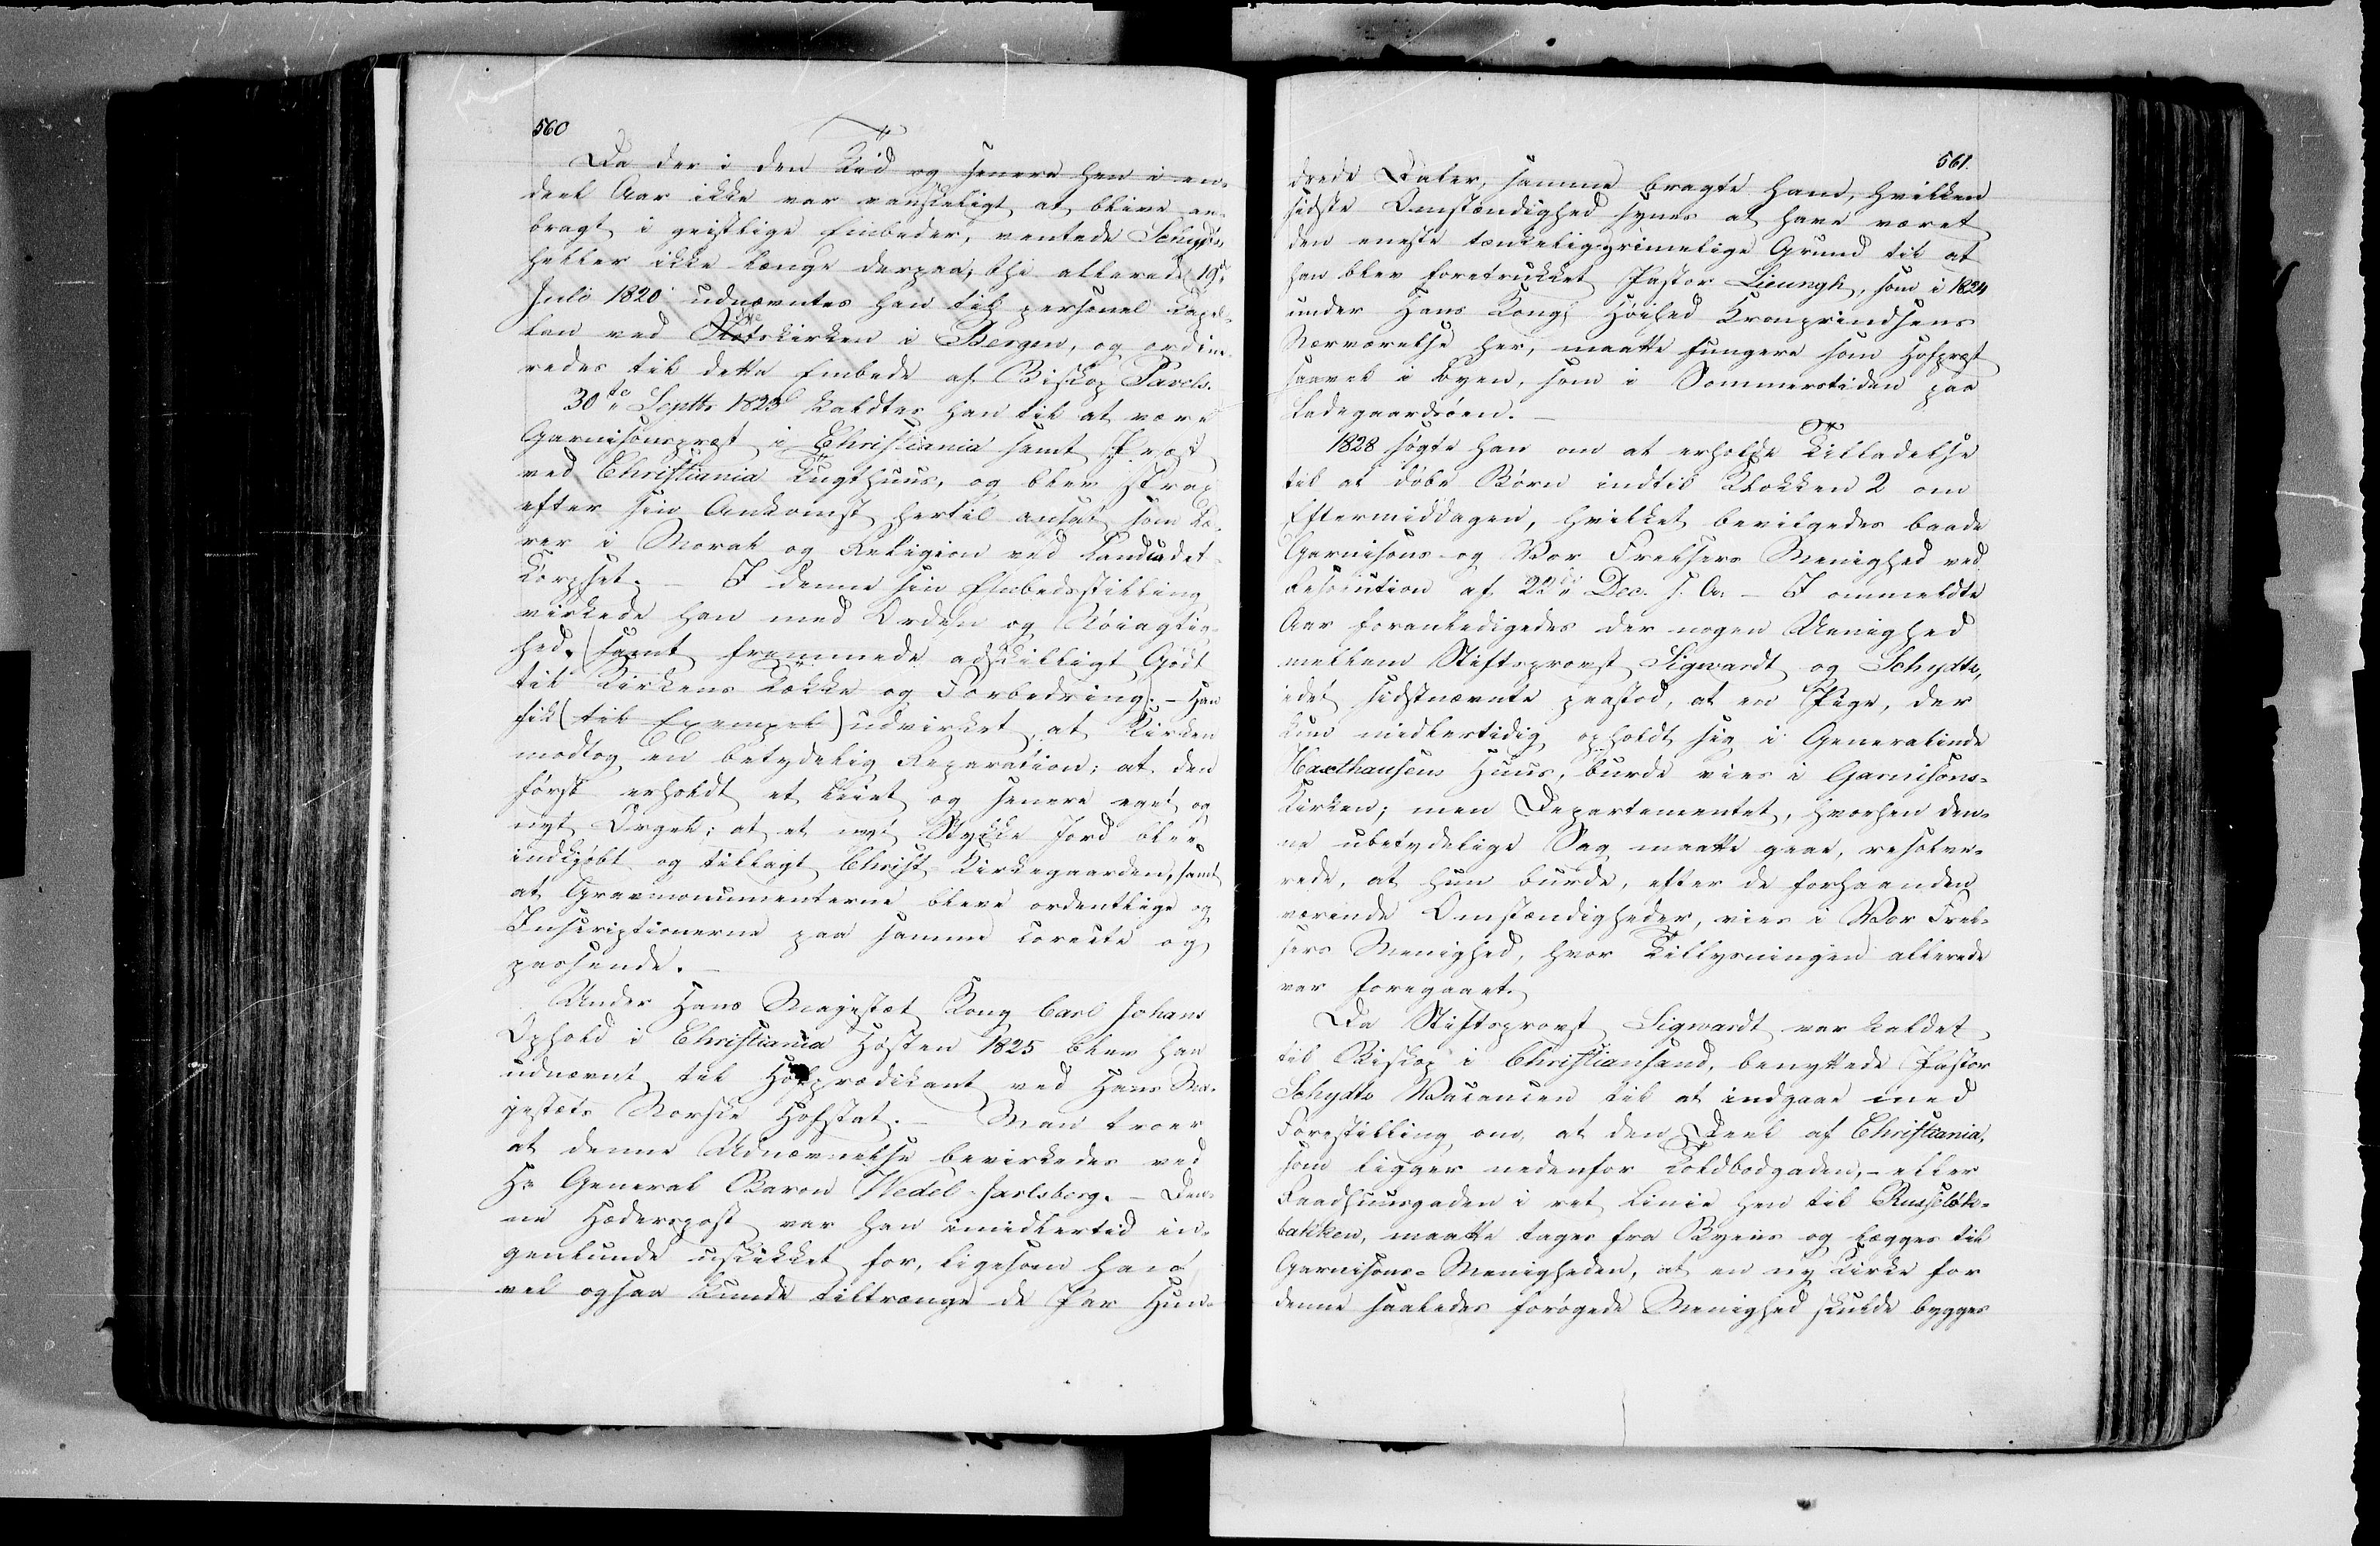 560
Da der i den Tid og senere hen i en
deel Aar ikke var vanskeligt at blive an-
bragt i geistlige Embeder, ventede Schydtz
heller ikke længe derpaa, thi allerede 19de
Juli 1820 udnævntes han til personel Capel-
lan ved kirken i Bergen, og ordine-
redes til dette Embede af Biskop Pavels.
30te Septbr 1823 kaldtes han til at være
Garnisonspræst i Christiania samt Præst
ved Christiania Tugthuus, og blev strax
efter sin Ankomst hertil ansat som Læ-
rer i Moral og Religion ved Landcadet-
Corpset. - I denne sin Embedsstilling
virkede han med Orden og Nøiagtig-
hed, (samt fremmede adskilligt Godt
til Kirkens Tække og Forbedring. - Han
fik (til Exempel) udvirket, at Kirken
modtog en betydelig Reparation; at den
først erholdt et leiet og senere eget og
nyt Orgel; at et nyt Stykke Jord blev
indkjøbt og tillagt Christ Kirkegaarden, samt
at Gravmonumenterne bleve ordentlige og
Inscriptionerne paa samme corecte og
passende. -
Under Hans Majestæt Kong Carl Johans
Ophold i Christiania Høsten 1825 blev han
udnævnt til Hofprædikant ved Hans Ma-
jestæts Norske Hofstat. - Man troer
at denne Udnævnelse bevirkedes ved
Hr General Baron Wedel-Jarlsberg. - Den-
ne Hæderspost var han imidlertid in-
genlunde uskikket for, ligesom han
vel ogsaa kunde tiltrænge de Par Hun-
561.
drede Daler, samme bragte ham, hvilken
sidste Omstændighed synes at have været
den eneste tænkelig rimelige Grund til at
han blev foretrukket Pastor Lieungh, som i 1824
under Hans Kongl Høihed Kronprindsens
Nærværelse her, maatte fungere som Hofpræst
saavel i Byen, som i Sommerstiden paa
Ladegaardsøen. -
1828 søgte han om at erholde Tilladelse
til at døbe Børn indtil Klokken 2 om
Eftermiddagen, hvilket bevilgedes baade
Garnisons og Vor Frelsers Menighed ved
Resolution af 22de Dec. s. A. - I ommeldte
Aar foranledigedes der nogen Uenighed
mellem Stiftsprovst Sigwardt og Schydtz,
idet sidstnævnte paastod, at en Pige, der
kun midlertidig opholdt sig i Generalinde
Haxthausens Huus, burde vies i Garnisons-
Kirken; men Departementet, hvorhen den-
ne ubetydelige Sag maatte gaae, resolve-
rede, at hun burde, efter de forhaanden
værende Omstændigheder, vies i Vor Frel-
sers Menighed, hvor Tillysningen allerede
var foregaaet.
Da Stiftsprovst Sigwardt var kaldet
til Biskop i Christiansand, benyttede Pastor
Schydtz Vacancen til at indgaae med
Forestilling om, at den Deel af Christiania,
som ligger nedenfor Toldbodgaden, - eller
Raadhuusgaden i ret Linie hen til Ruseløk-
bakken, maatte tages fra Byens og lægges til
Garnisons-Menigheden, at en ny Kirke for
denne saaledes forøgede Menighed skulde bygges